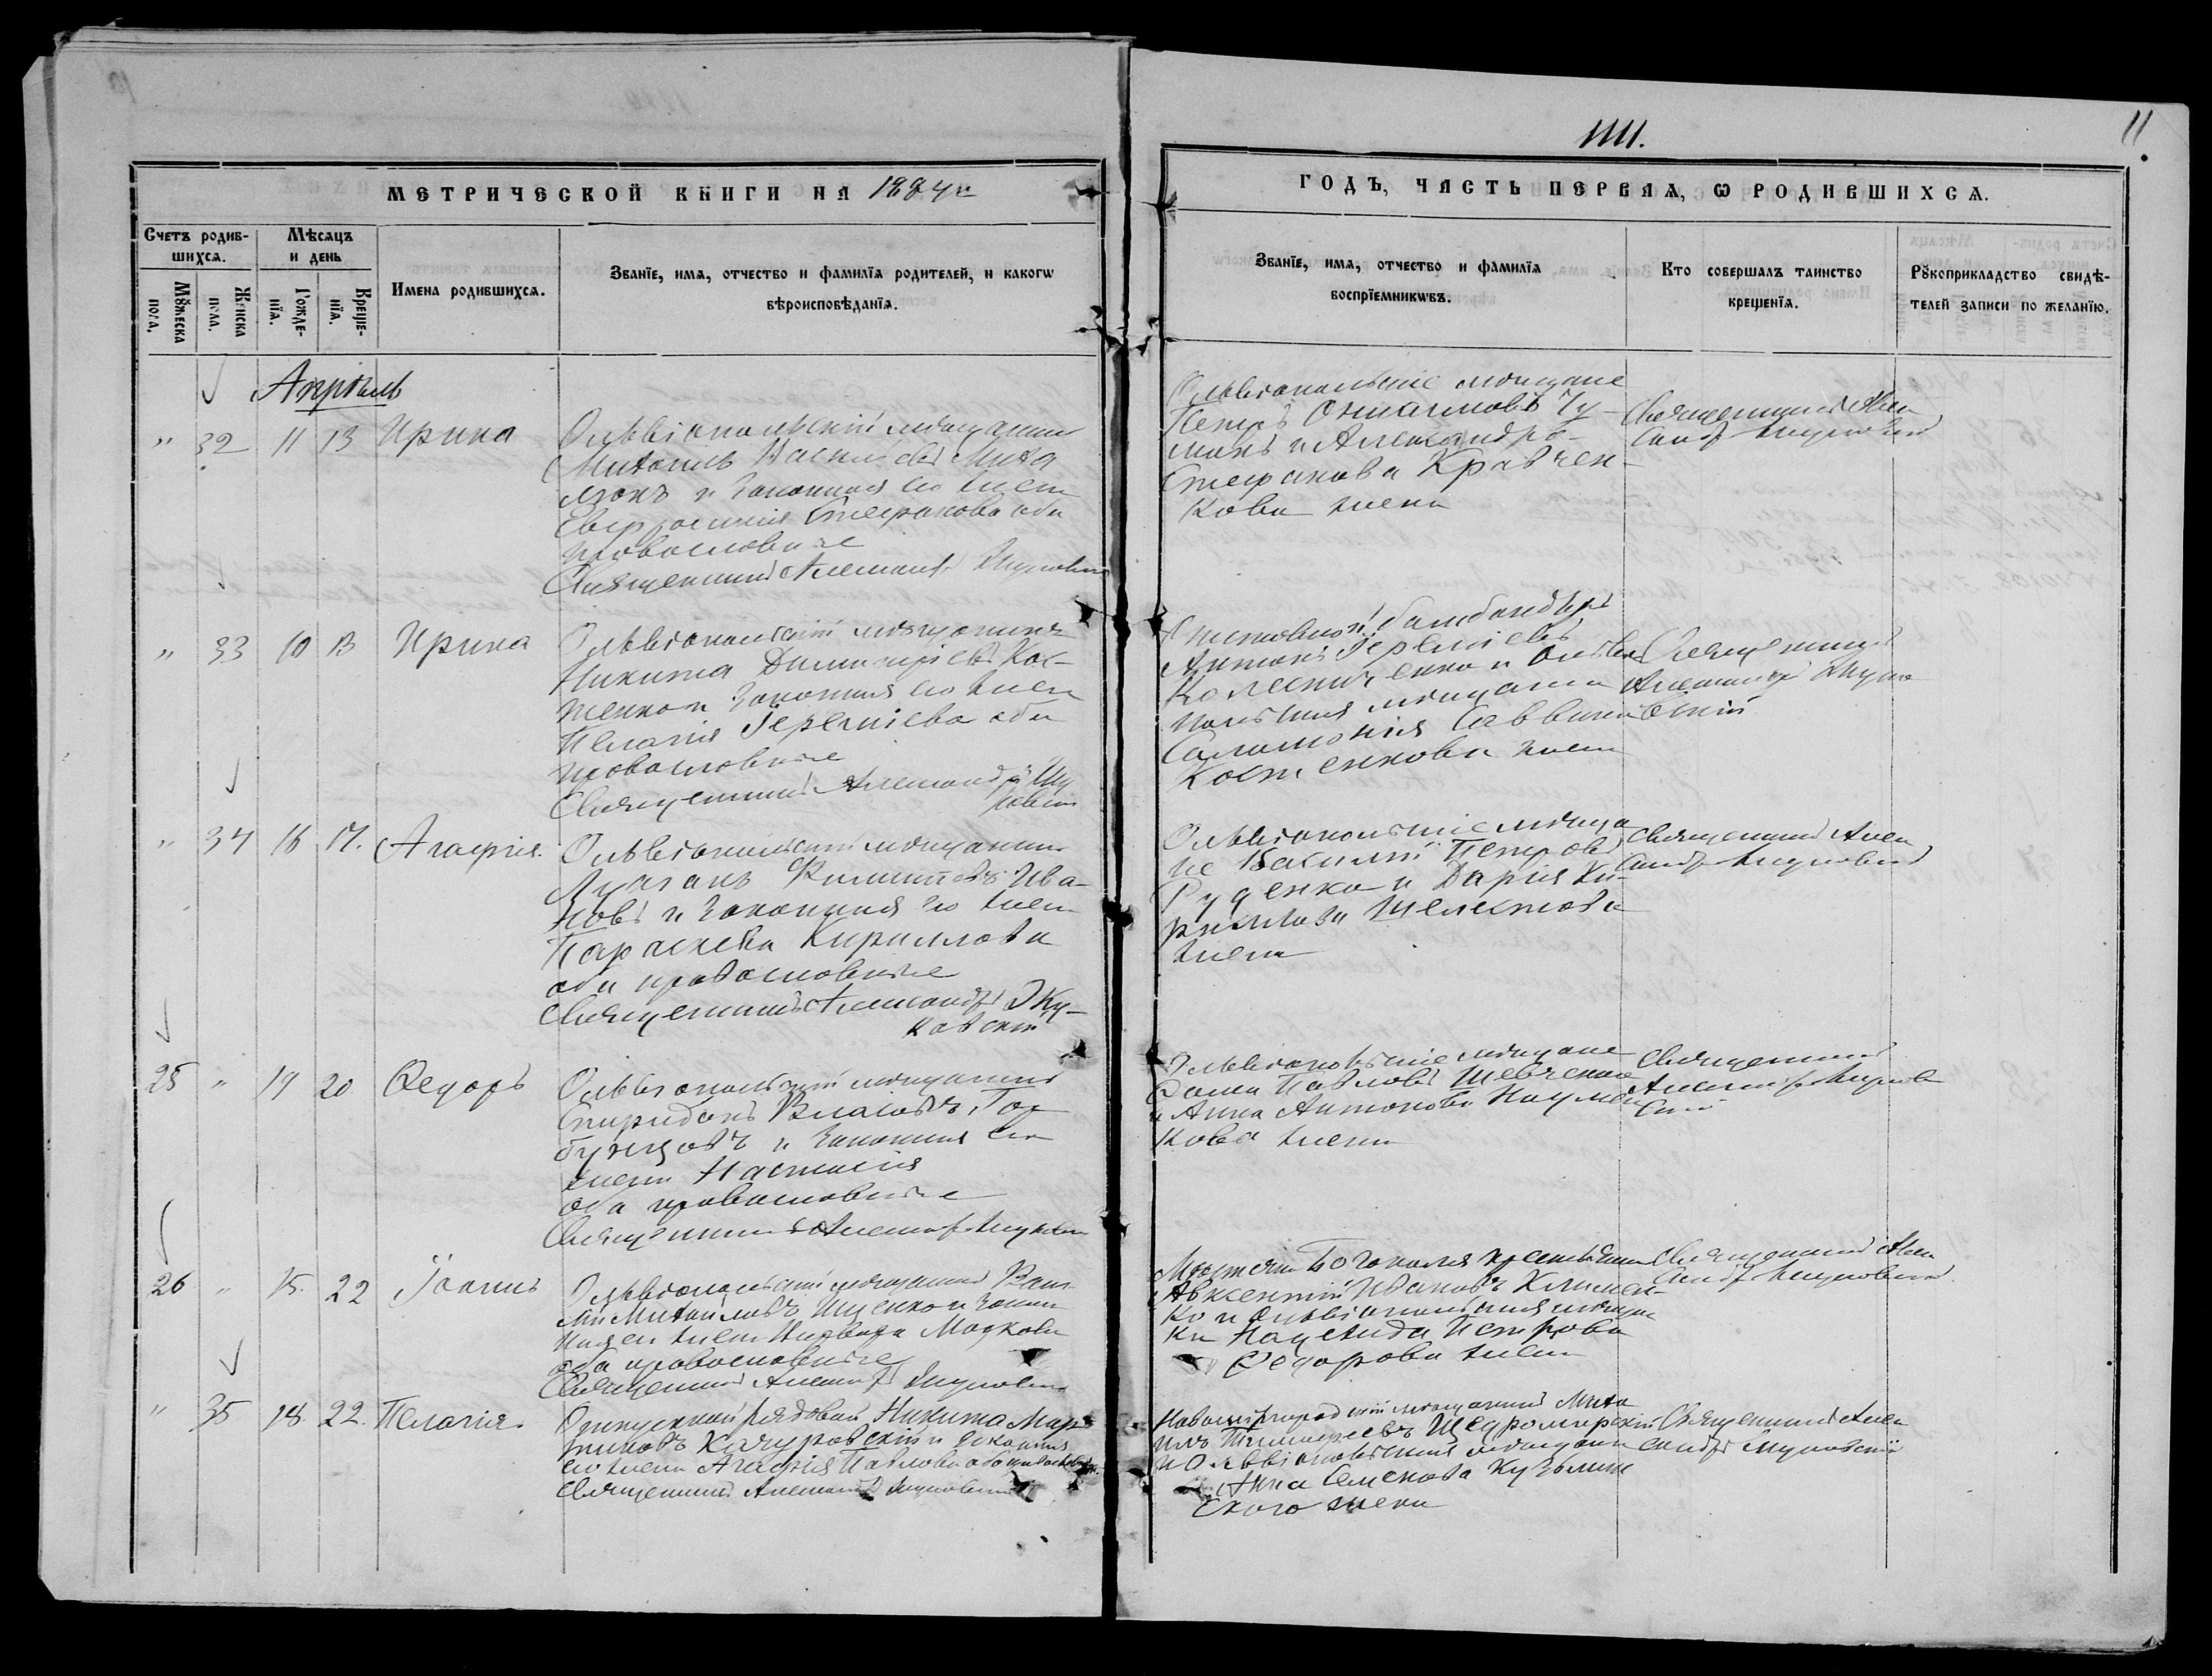 1111.
11
МЕТРИЧЕСКОЙ КНИГИ НА 1884 г.
ГОДЪ, ЧАСТЬ ПЕРВАЯ, Ѡ РОДИВШИХСѦ.
Счетъ родив-
шихсѧ.
Мѣсѧцъ
и день
Мꙋжеска
пола.
Женска
пола.
Рожде-
нїѧ.
Креще-
нїѧ.
Имена родившихсѧ.
Званїе, имѧ, отчество и фамилїѧ родителей, и какогѡ
вѣроисповѣданїѧ.
Званїе, имѧ, отчество и фамилїѧ
воспрїемникѡвъ.
Кто совершалъ таинство
крещенїѧ.
Рꙋкоприкладство свидѣ-
телей записи по желанїю.
Апрѣль
" 32 11 13 Ирина
Ольвіопольскій мѣщанинъ
Михаилъ Васильевъ
и законная его жена
Евфросинія Стефанова оба
православные
Священникъ Александръ
Ольвіопольскіе мѣщане
Петръ
и Александра
Стефанова Кравчен-
кова жена
Священникъ Алек
сандръ
" 33 10 13 Ирина
Ольвіопольскій мѣщанинъ
Никита Димитріевъ Кос-
тенко и законная его жена
Пелагія Іереміева оба
православные
Священникъ Александръ
Антонъ Іереміевъ
Колесниченко и Ольвіо
польская мѣщанка
Саломонія Саввина
Костенкова жена
Священникъ
Александръ
" 34 16 17. Агафія.
Ольвіопольскій мѣщанинъ
Лукіанъ Филипповъ Ива-
новъ и законная его жена
Параскева Кириллова
оба православные
Священникъ Александръ Жу-
ковскій
Ольвіопольскіе мѣща
не Василій Петровъ
Руденко и Дарія Ки-
риллова Шелестова
жена
Священникъ Алек
сандръ
25 " 19 20 Ѳедоръ
Ольвіопольскій мѣщанинъ
Спиридонъ Власовъ Гор
бунцовъ и законная его
жена Настасія
оба православные
Священникъ Александръ
Ольвіопольскіе мѣщане
Павловъ Шевченко
и Анна Антонова Наумен
кова жена
Священникъ
Александръ
26 " 15. 22 Іоаннъ
Ольвіопольскій мѣщанинъ Васи
лій Михайловъ Ищенко и закон
ная его жена Варвара Маркова
оба православные
Священникъ Александръ
Мѣстечка Богополя крестьянинъ
Авксентій Ивановъ Климен-
ко и Ольвіопольская мѣщан
ка Петрова
Ѳедорова жена
Священникъ Алек
сандръ
" 35 18. 22. Пелагія.
Отпускной рядовой Никита Мар
тиновъ Качуровскій и законная
его жена Агафія Павлова оба православные
Священникъ Александръ
мѣщанинъ Миха
илъ Тимофеевъ
и Ольвіопольская мѣщанка
Анна Семенова Кузьмин
ского жена
Священникъ Алек
сандръ Жуковскій